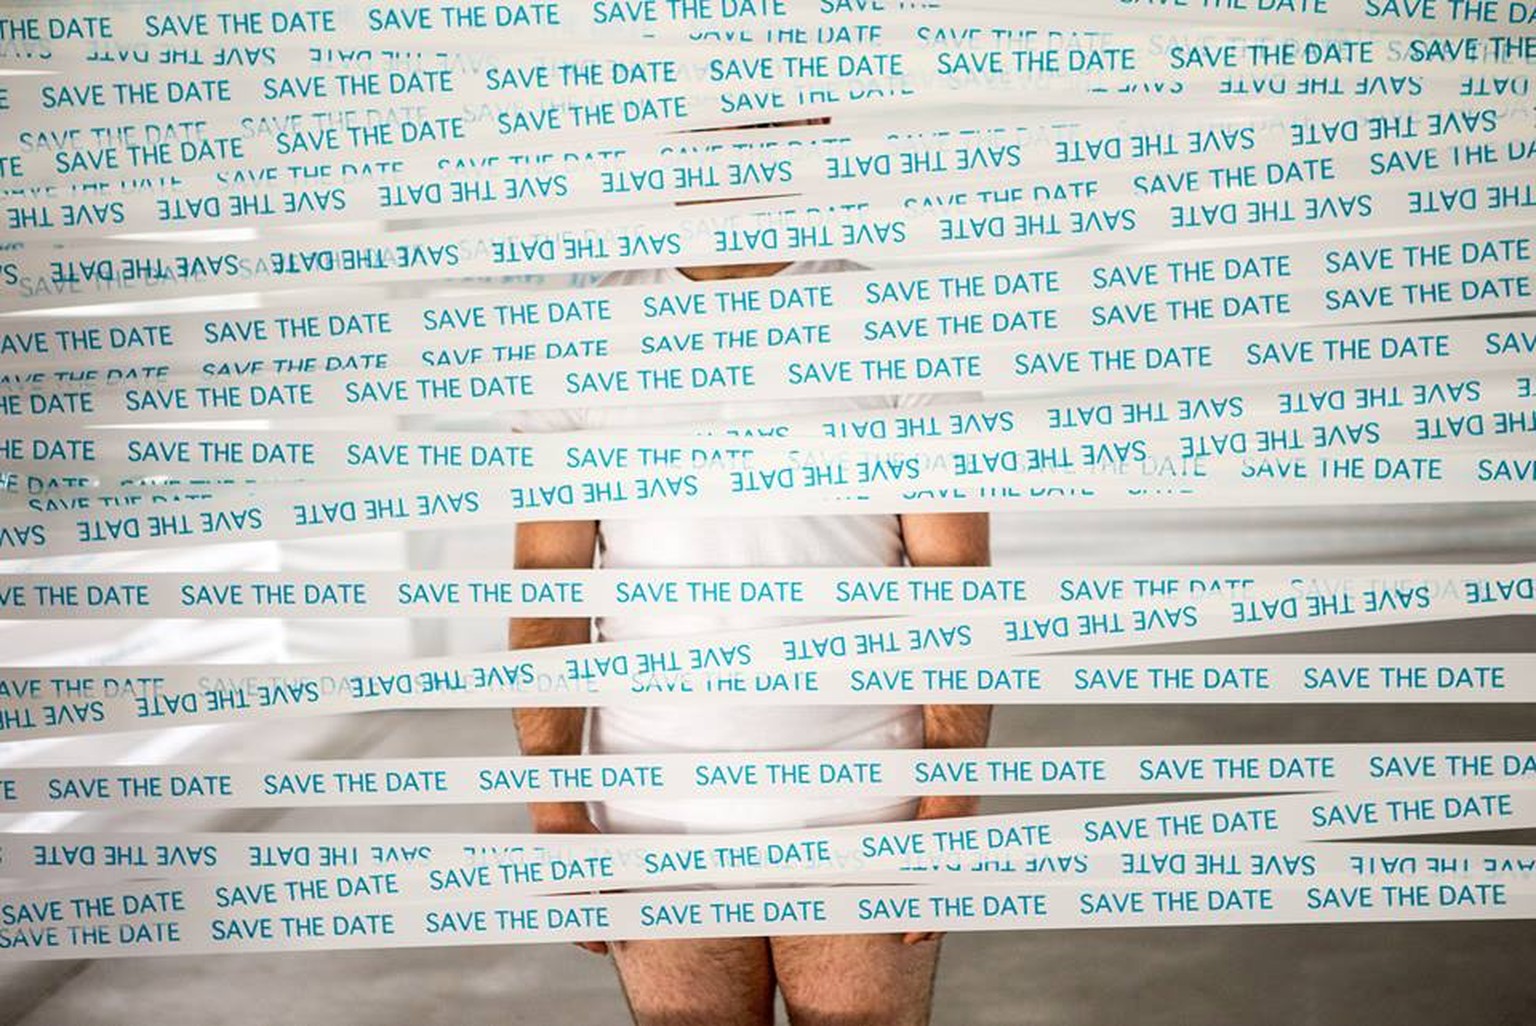 THE DATE SAVE THE DATE SAVE THE DATE SAVE THE DATE SAVE THE DATE SAVE THE
SAVE THE DATE SAVE THE DATE
SAVE THE DATE SAVE THE DATE SAVE THE DATE SAVE THE DATE SAVE THE DATE SAVE THE DATE SAVE THE
SAVE THE DATE SAVE THE DATE SAVE THE DATE SAVE THE DATE
SAVE THE DATE SAVE THE DATE SAVE THE DATE SAVE THE DATE SAVE THE DATE SAVE THE DATE
SAVE THE DATE SAVE THE DATE SAVE THE
SAVE THE DATE SAVE THE DATE SAVE THE DATE SAVE THE DATE SAVE THE DATE SAVE THE DATE
SAVE THE DATE SAVE THE DATE SAVE THE DATE SAVE THE DATE SAVE THE DATE SAVE THE DATE SAVE THE DATE
SAVE THE DATE SAVE THE DATE SAVE THE DATE SAVE THE DATE SAVE THE DATE SAVE THE DATE
THE DATE SAVE THE DATE SAVE THE DATE SAVE THE DATE SAVE THE DATE SAVE THE DATE SAVE THE DATE
THE DATE SAVE THE DATE SAVE THE DATE SAVE THE DATE
SAVE THE DATE SAVE THE DATE SAVE THE DATE
SAVE THE DATE SAVE THE DATE SAVE THE DATE SAVE THE DATE SAVE THE DATE SAVE THE DATE
SAVE THE DATE
SAVE THE DATE SAVE THE DATE SAVE THE DATE SAVE THE DATE SAVE THE DATE SAVE THE DATE
SAVE THE DATE SAVE THE DATE SAVE THE DATE SAVE THE DATE SAVE THE DATE SAVE THE DATE SAVE THE DATE
SAVE THE DATE SAVE THE DATE SAVE THE DATE SAVE THE DATE
SAVE THE DATE SAVE THE DATE SAVE THE DATE SAVE THE DATE SAVE THE DATE SAVE THE DATE SAVE THE
SAVE THE DATE SAVE THE DATE SAVE THE DATE SAVE THE DATE
SAVE THE DATE SAVE THE DATE SAVE THE DATE SAVE THE DATE SAVE THE DATE SAVE THE DATE SAVE THE DATE
SAVE THE DATE SAVE THE DATE SAVE THE DATE SAVE THE DATE SAVE THE DATE SAVE THE DATE SAVE THE DATE